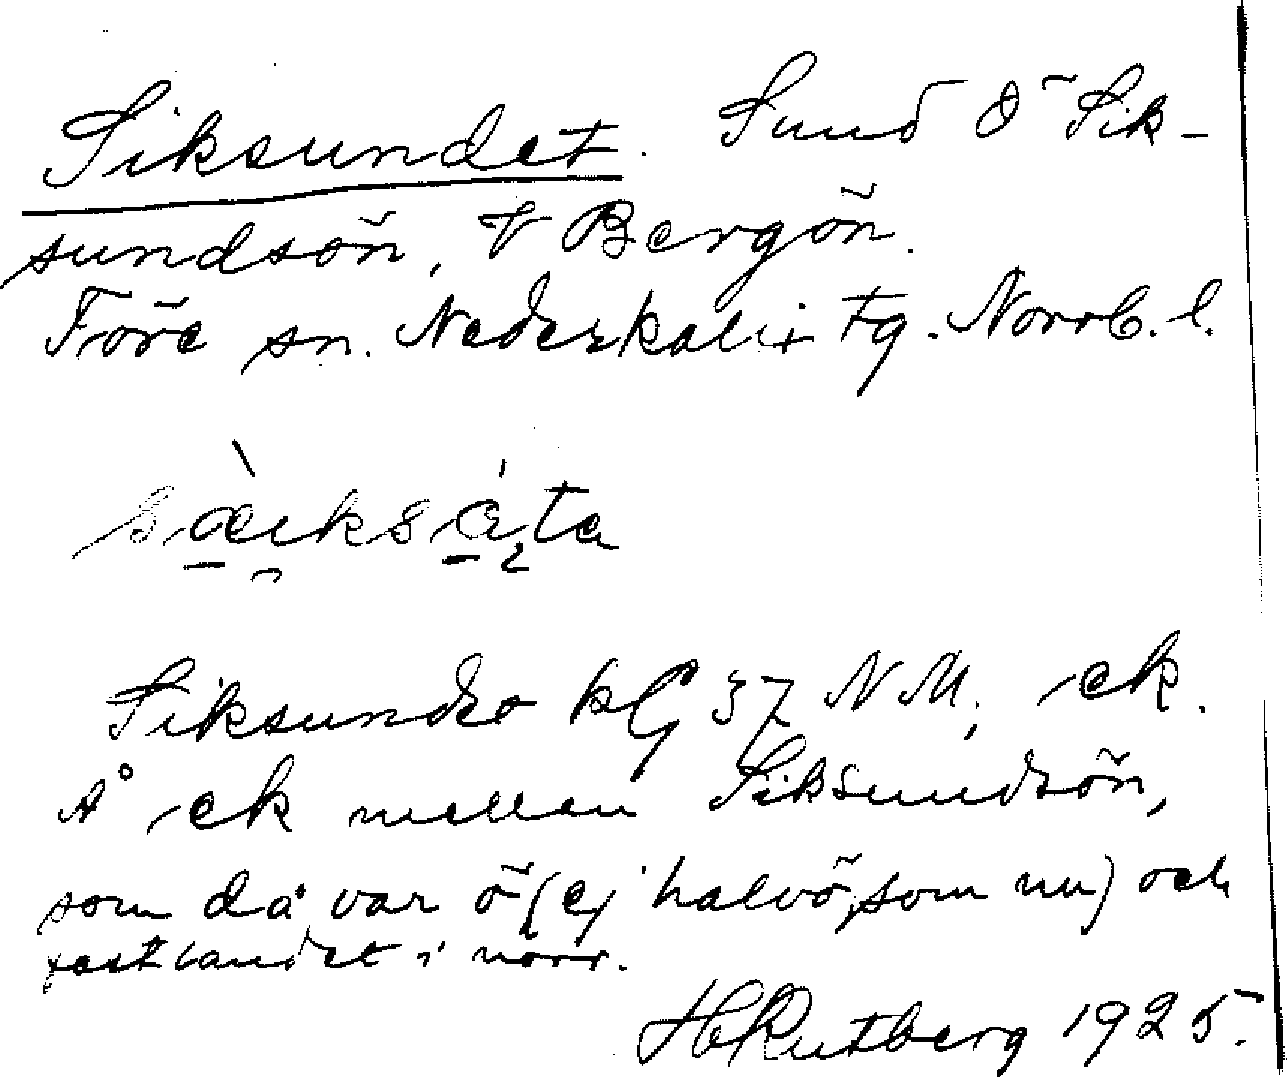 Siksundet. Sund Ö Sik-
sundsön, V Bergön.
Töre sn. Nederkalix tg. Norrb. l.
sæ̀iksáta
Siksundso kG 37 NM, ek.
Å ek mellan Siksundsön,
som då var ö (ej halvö, som nu) och
fastlandet i norr.
H Rutberg 1925.